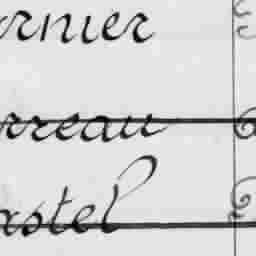 rnier
rreau
astel